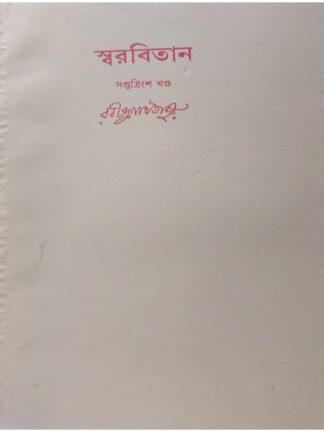 স্বরবিতান
সপ্তত্রিংশ খণ্ড
রবীন্দ্রনাথ ঠাকুর